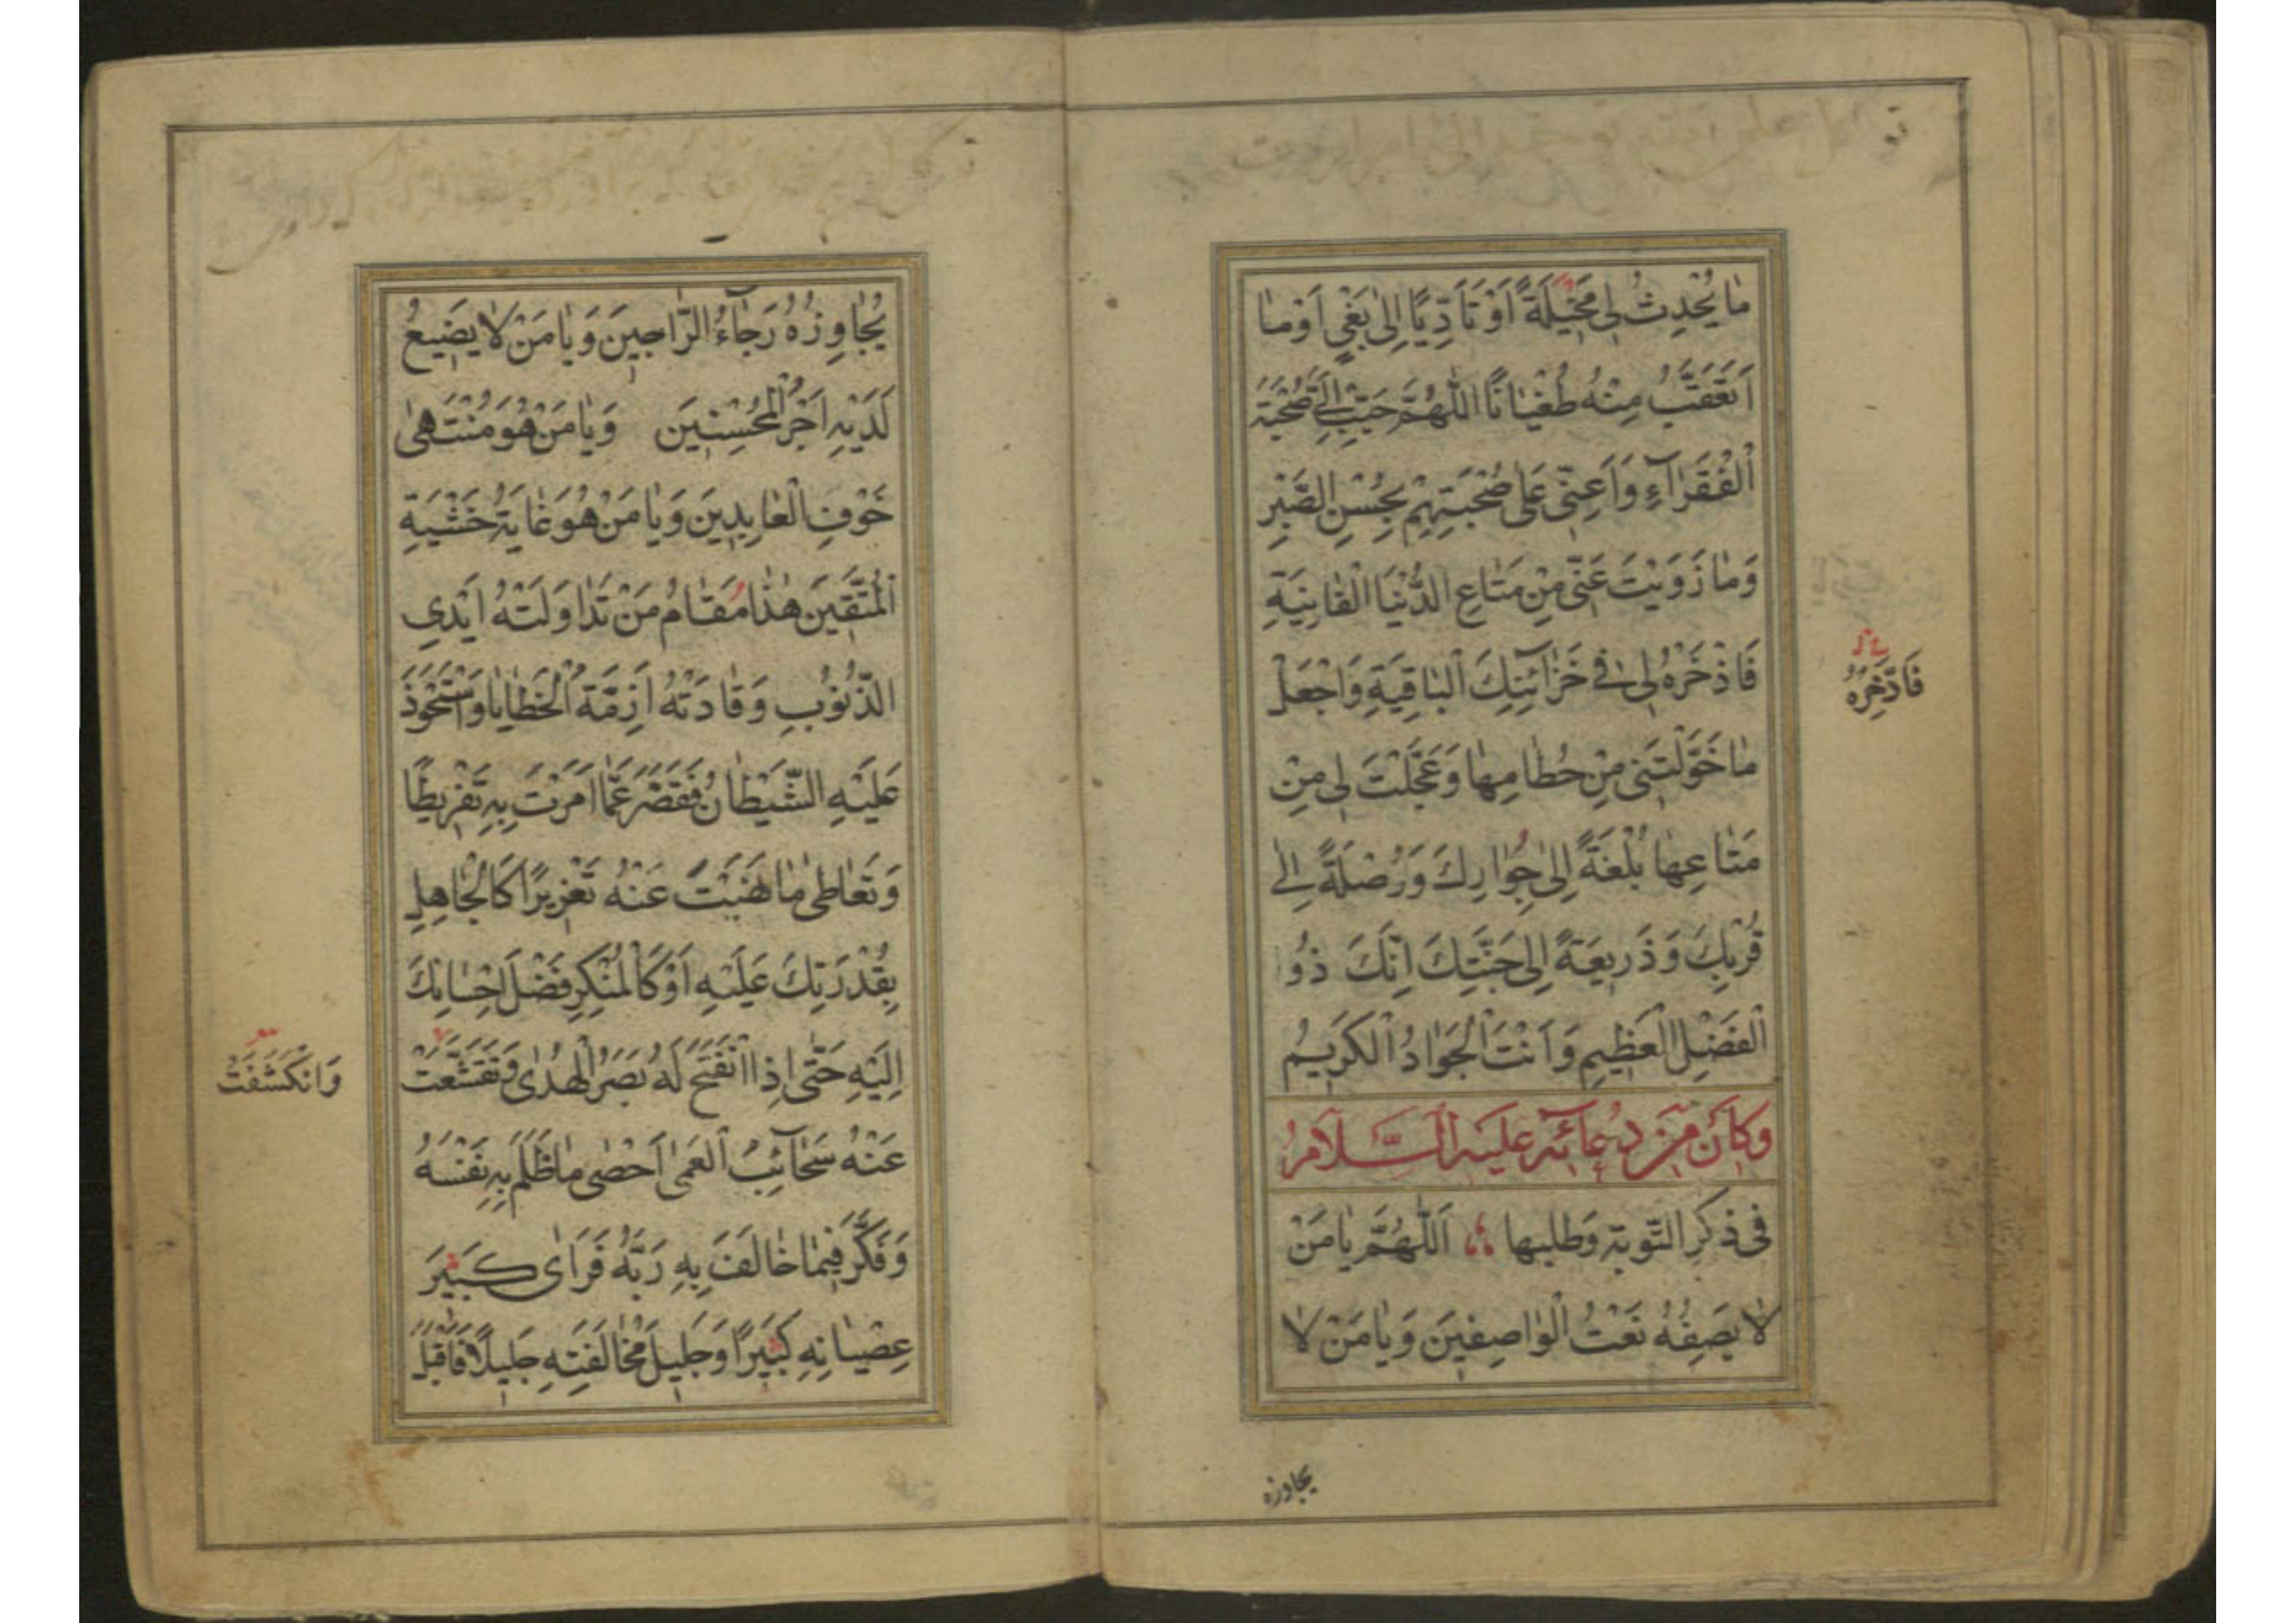 مٰا يُحْدِثُ لِى مَخِيْلَةً اَوْ تَاَدِّيًا اِلىٰ بَغْيٍ اَوْ مٰا
اَتَعَقَّبُ مِنْهُ طُغْيٰانًا اَللّٰهُمَّ حَبِّبْ اِلَىَّ صُحْبَةَ
الْفُقَرٰآءِ وَاَعِنّى عَلىٰ صُحْبَتِهِمْ بِحُسْنِ الصَّبْرِ
وَمٰا زَوَيْتَ عَنّى مِنْ مَتٰاعِ الدُّنْيَا الْفٰانِيَةِ
فَاذْخَرْهُ لِى فى خَزٰآئِنِكَ الْبٰاقِيَةِ وَاجْعَلْ
فَادَّخِرْهُ
مٰا خَوَّلْتَنى مِنْ حُطٰامِهٰا وَعَجَّلْتَ لِى مِنْ
مَتٰاعِهٰا بُلْغَةً اِلىٰ جِوٰارِكَ وَوُصْلَةً اِلىٰ
قُرْبِكَ وَذَرِيعَةً اِلىٰ جَنَّتِكَ اِنَّكَ ذُو
الْفَضْلِ الْعَظِيمِ وَاَنْتَ الْجَوٰادُ الْكَرِيمُ
وَكٰانَ مِنْ دُعٰآئِهِ عَلَيْهِ السَّلٰامُ
فى ذكر التّوبة وَطلبها اَللّٰهُمَّ يٰا مَنْ
لٰا يَصِفُهُ نَعْتُ الْوٰاصِفِينَ وَيٰا مَنْ لٰا
يجاوزه
يُجٰاوِزُهُ رَجٰآءُ الرّٰاجِينَ وَيٰا مَنْ لٰا يَضِيعُ
لَدَيْهِ اَجْرُ الْمُحْسِنِينَ وَيٰا مَنْ هُوَ مُنْتَهىٰ
خَوْفِ الْعٰابِدِينَ وَيٰا مَنْ هُوَ غٰايَةُ خَشْيَةِ
الْمُتَّقِينَ هٰذٰا مَقٰامُ مَنْ تَدٰاوَلَتْهُ اَيْدِى
الذُّنُوبِ وَقٰادَتْهُ اَزِمَّةُ الْخَطٰايٰا وَاسْتَحْوَذَ
عَلَيْهِ الشَّيْطٰانُ فَقَصَّرَ عَمّٰا اَمَرْتَ بِهِ تَفْرِيطًا
وَتَعٰاطىٰ مٰا نَهَيْتَ عَنْهُ تَعْزِيرًا كَالْجٰاهِلِ
بِقُدْرَتِكَ عَلَيْهِ اَوْ كَالْمُنْكِرِ فَضْلَ اِحْسٰانِكَ
اِلَيْهِ حَتّىٰ اِذَا انْفَتَحَ لَهُ بَصَرُ الْهُدىٰ وَتَقَشَّعَتْ
وَانْكَشَفَتْ
عَنْهُ سَحٰآئِبُ الْعَمىٰ اَحْصىٰ مٰا ظَلَمَ بِهِ نَفْسَهُ
وَفَكَّرَ فِيمٰا خٰالَفَ بِهِ رَبَّهُ فَرَاىٰ كَبِيرَ
عِصْيٰانِهِ كَبِيرًا وَجَلِيلَ مُخٰالَفَتِهِ جَلِيلًا فَاَقْبَلَ